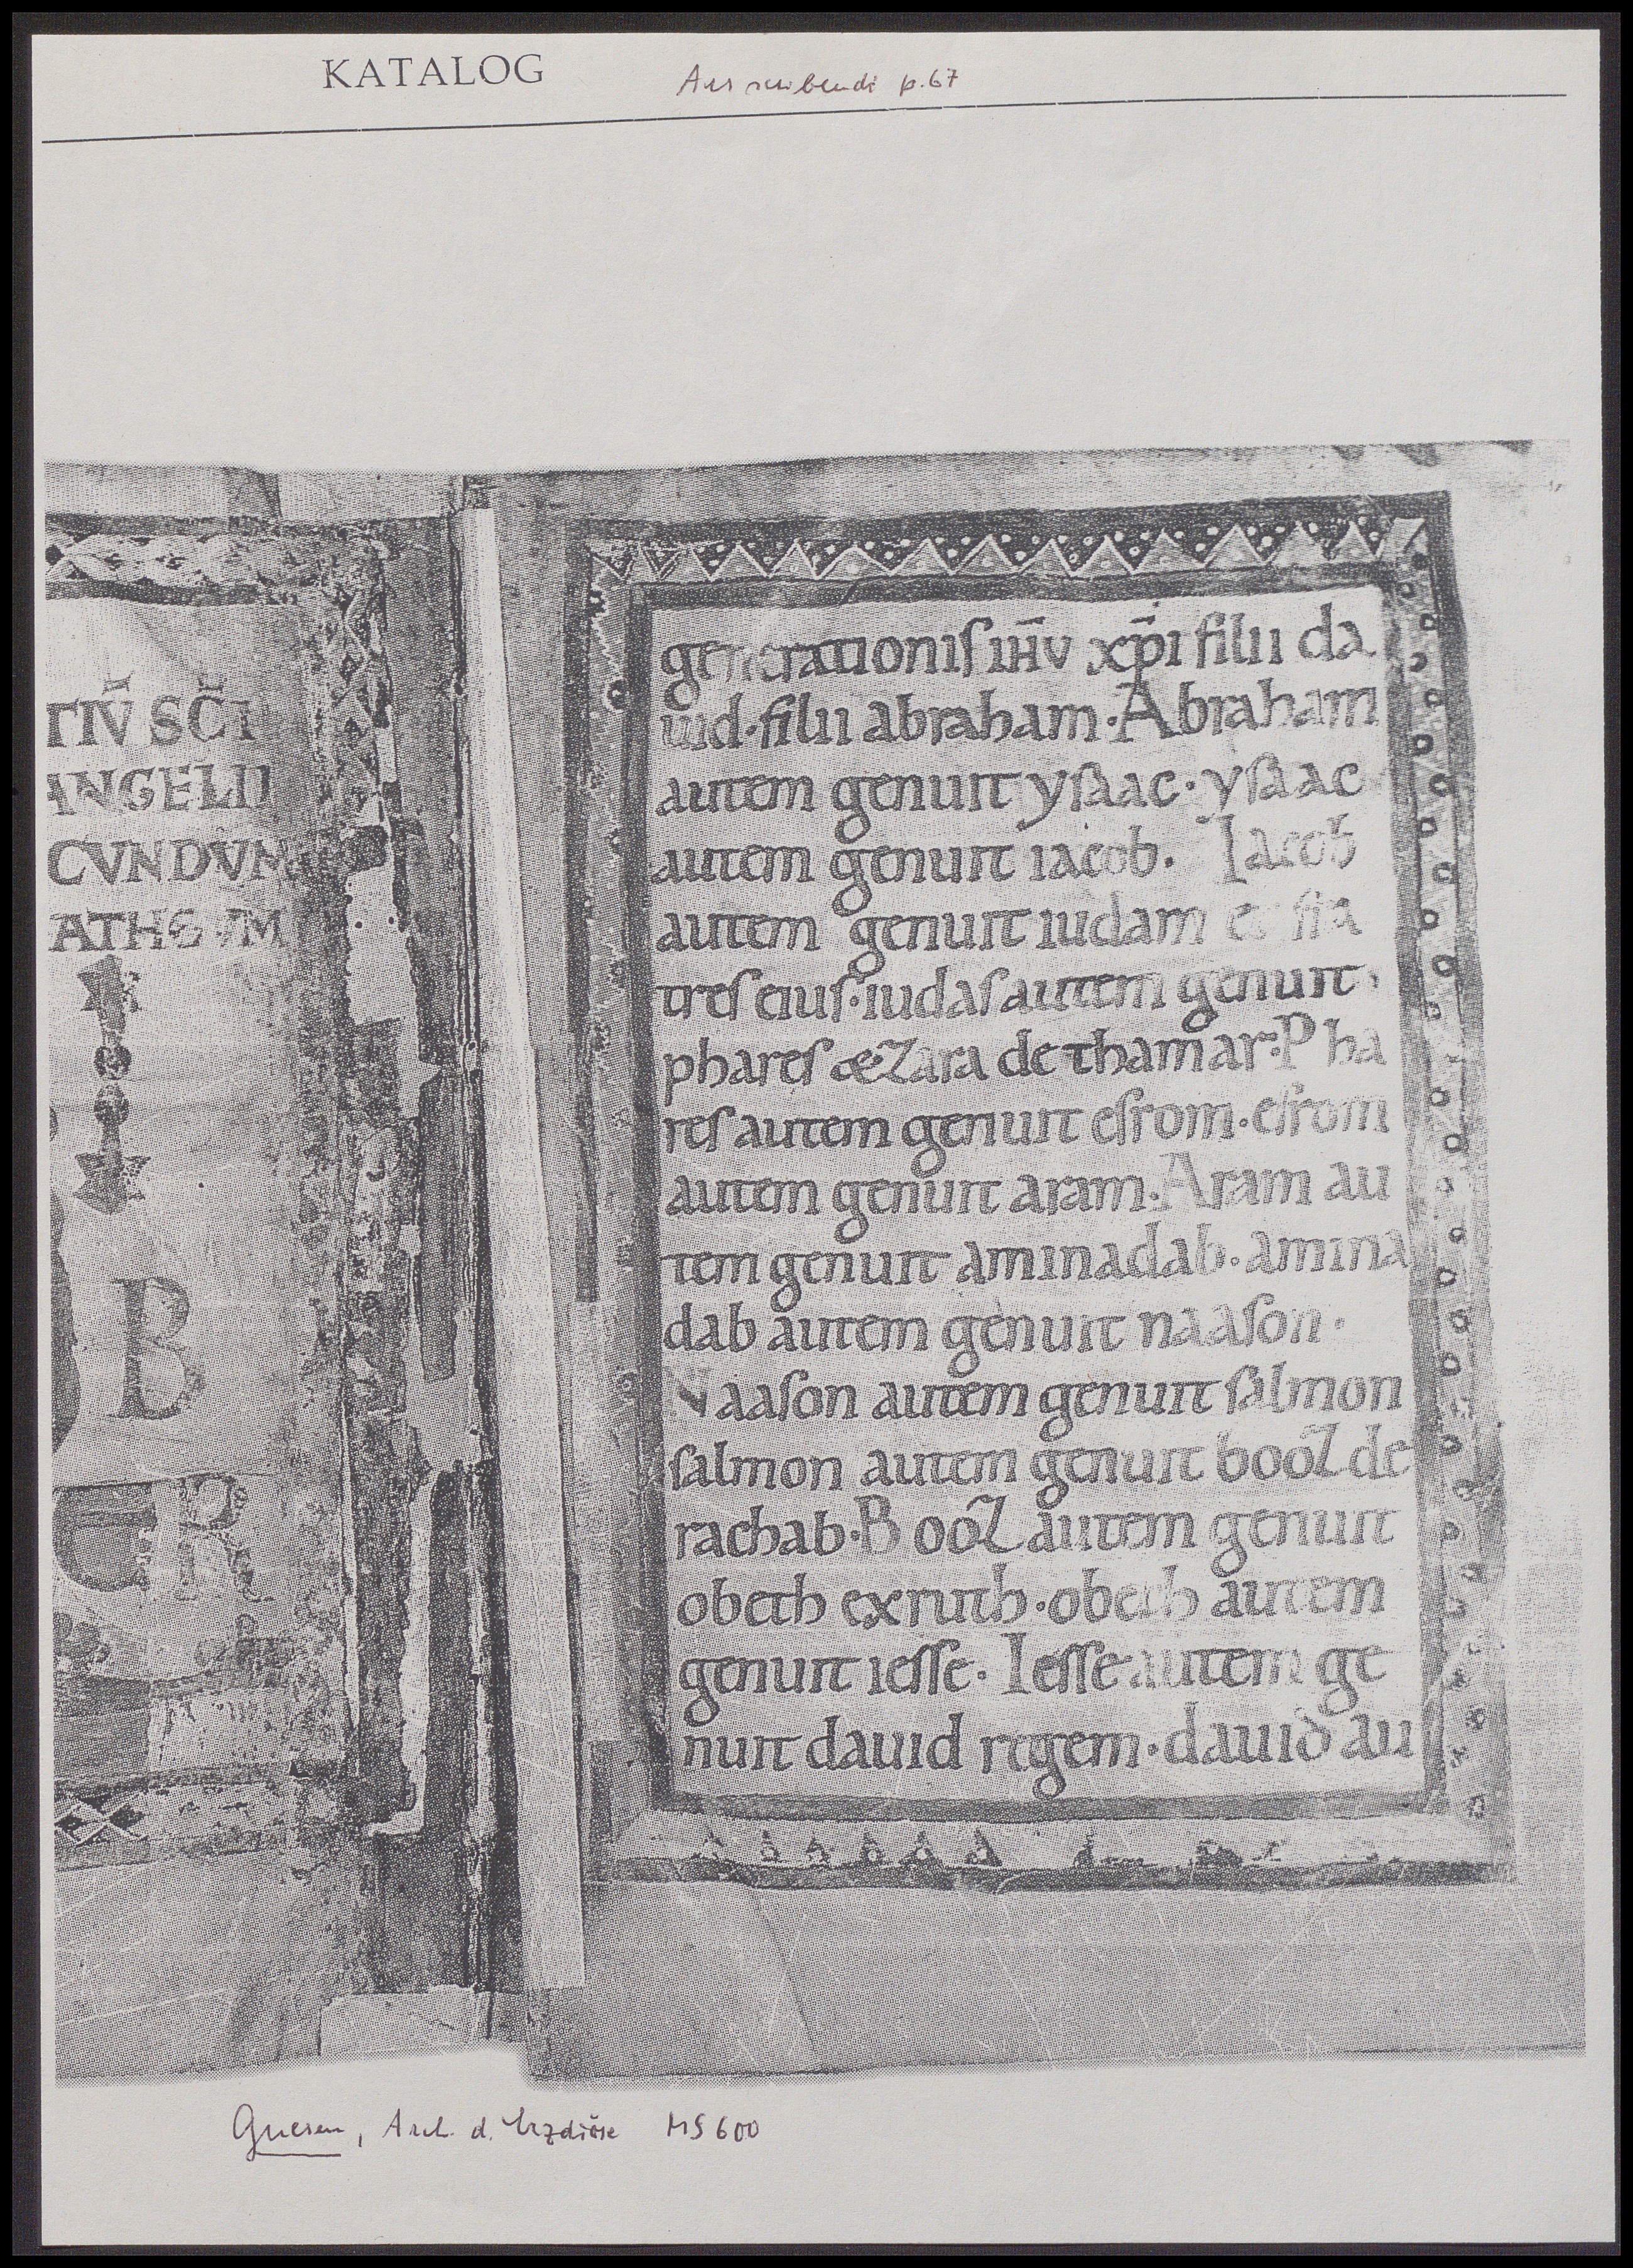 KATALOG
Ars scribendi p. 67
TIV̄ SC̄I
ANGELII
CVNDVM
ATHEVM
B
R
generationiſ ih̄v xp̄i filii da
uid · filii abraham · Abraham
autem genuit yſaac · yſaac
autem genuit iacob. Iacob
autem genuit iudam et fra
treſ eiuſ · iudaſ autem genuit ·
phareſ & Zara de thamar · Pha
reſ autem genuit eſrom · eſrom
autem genuit aram · Aram au
tem genuit aminadab · amina
dab autem genuit naaſon ·
Naaſon autem genuit ſalmon
ſalmon autem genuit booZ de
rachab · BooZ autem genuit
obeth ex ruth · obeth autem
genuit ieſſe · Ieſſe autem ge
nuit dauid regem · dauid au
Gnesen, Arch. d. Erzdiöze MS 600